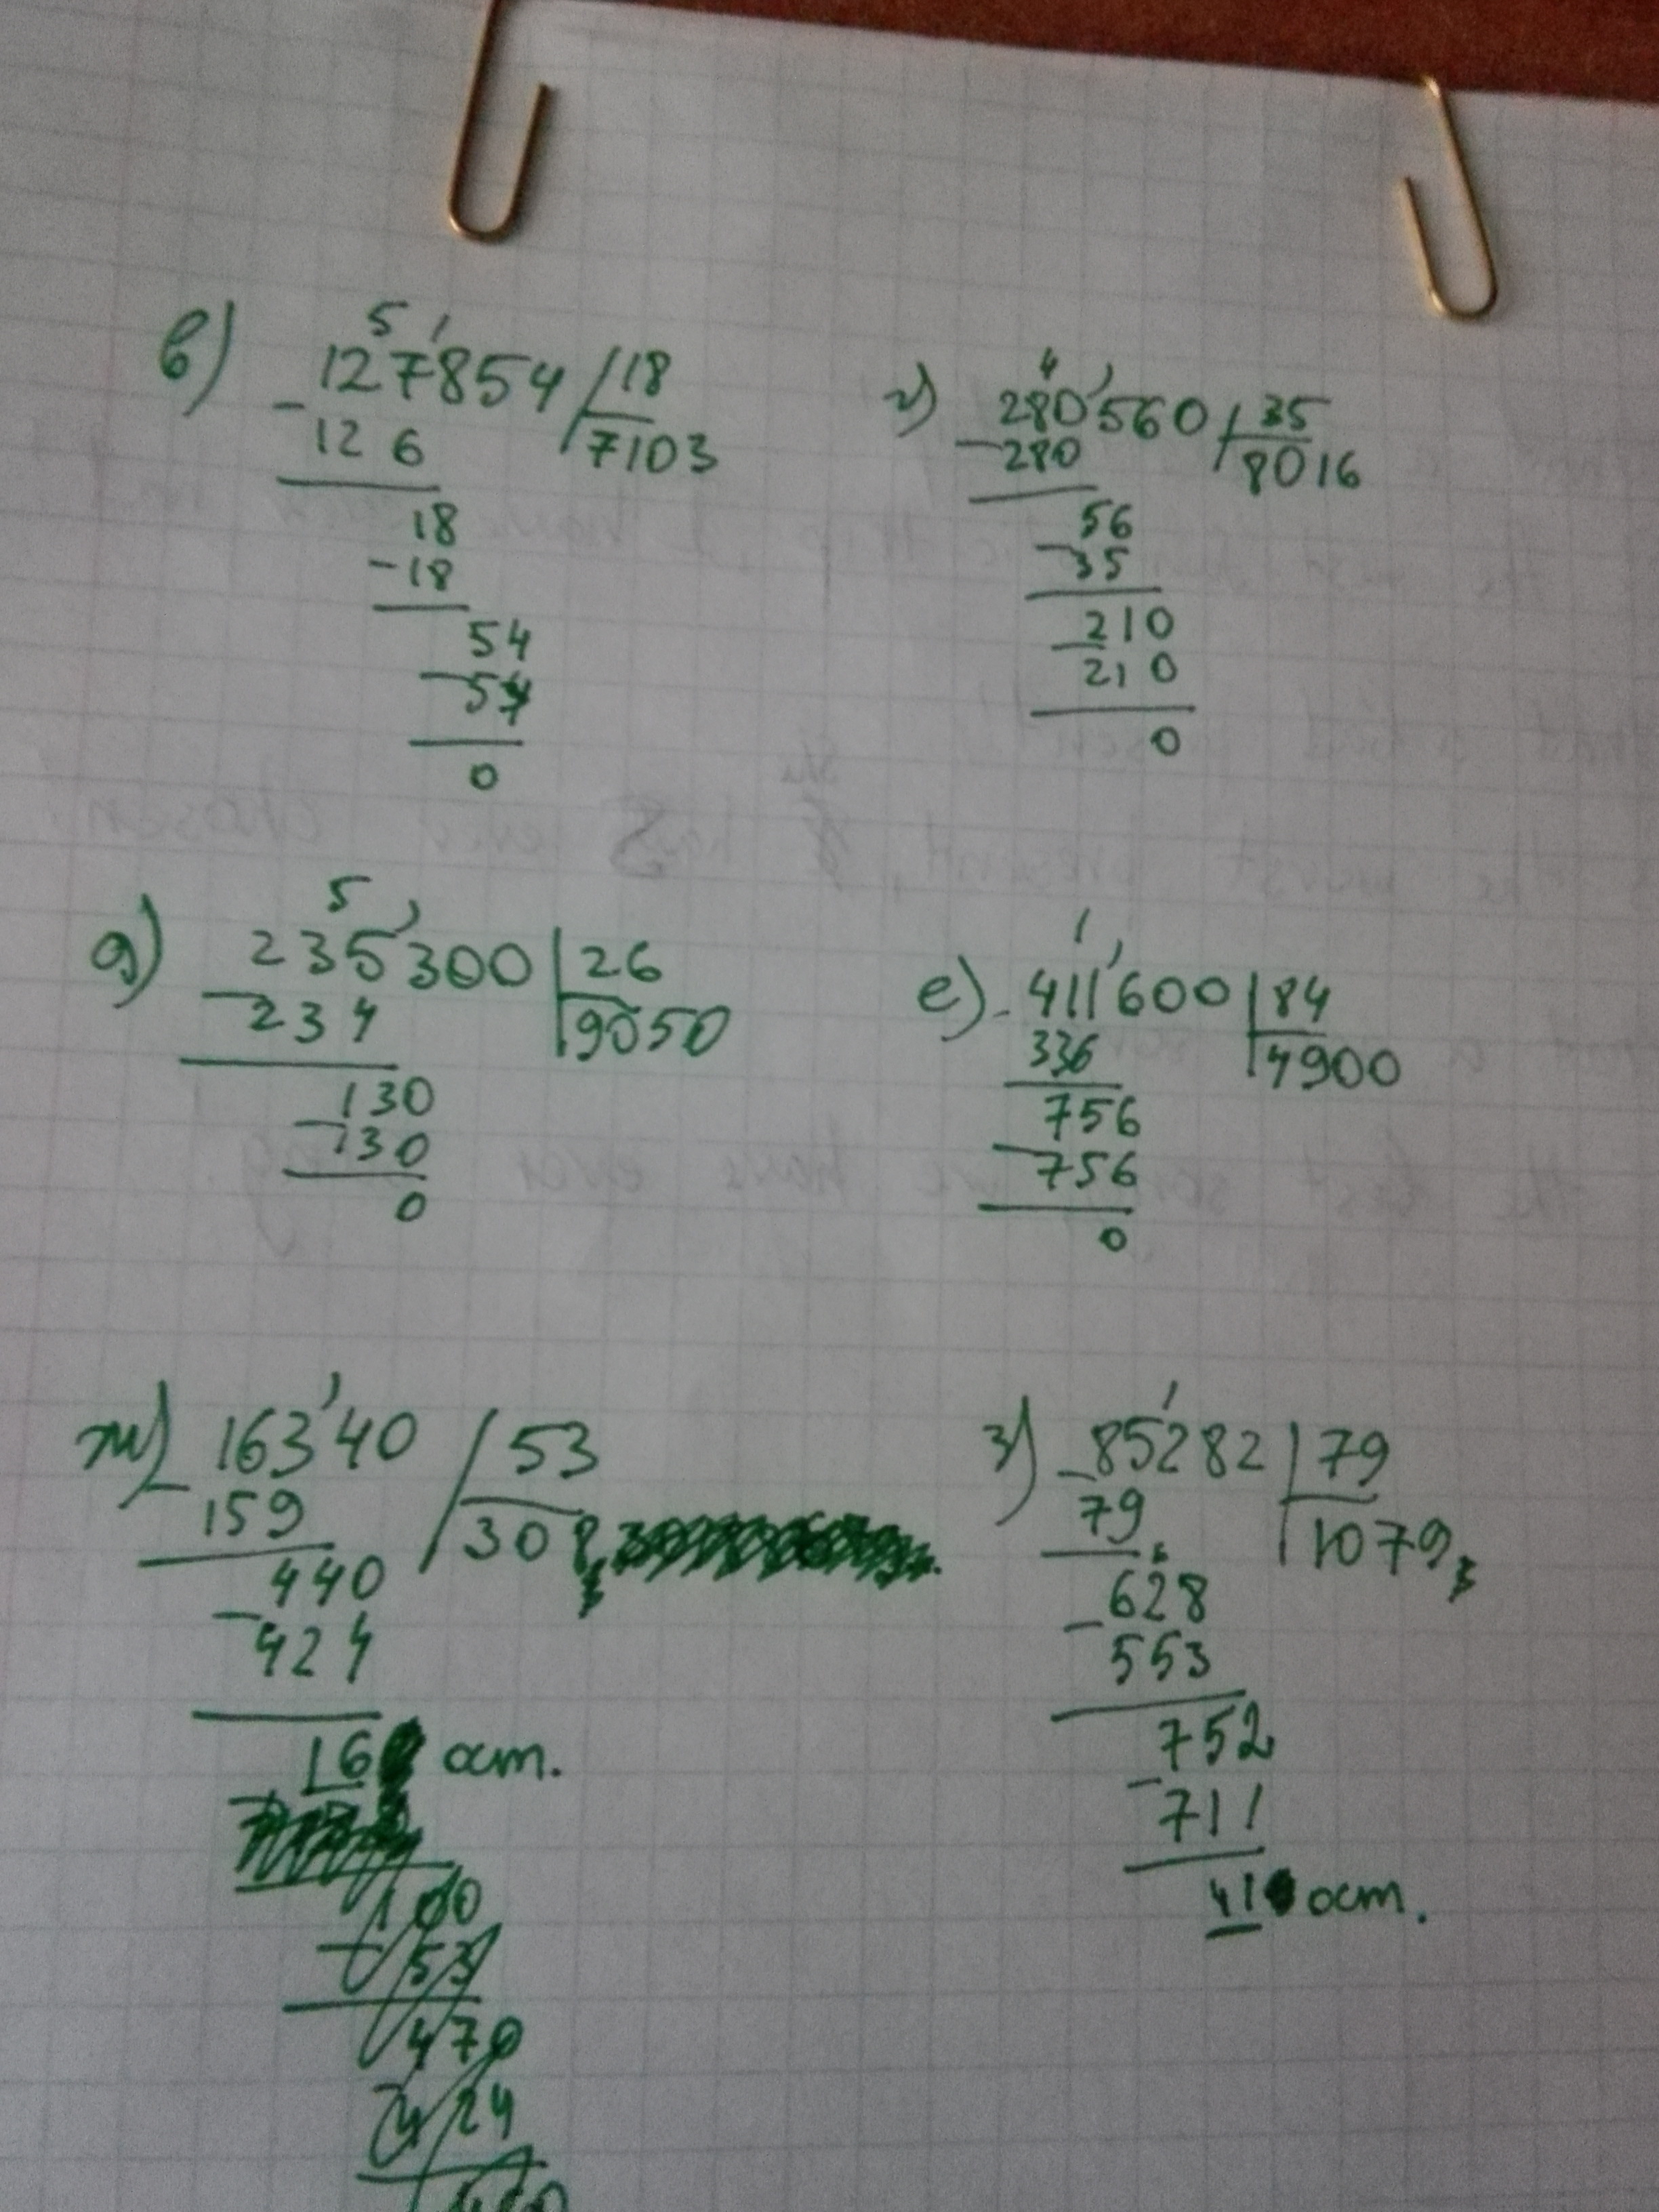 в) 5 ,
127854 18
- 126 7103
18
- 18
54
- 54
0
г) 4 ,
280560 35
- 280 8016
56
- 35
210
- 210
0
д) 5 ,
235300 26
- 234 9050
130
- 130
0
е) 1 ,
- 411600 84
336 4900
756
- 756
0
ж) 163'40 53
- 159 308
440
- 424
16 ост.
100
- 53
470
424
з) 85'282 79
- 79 1079
628
- 553
752
- 711
41 ост.